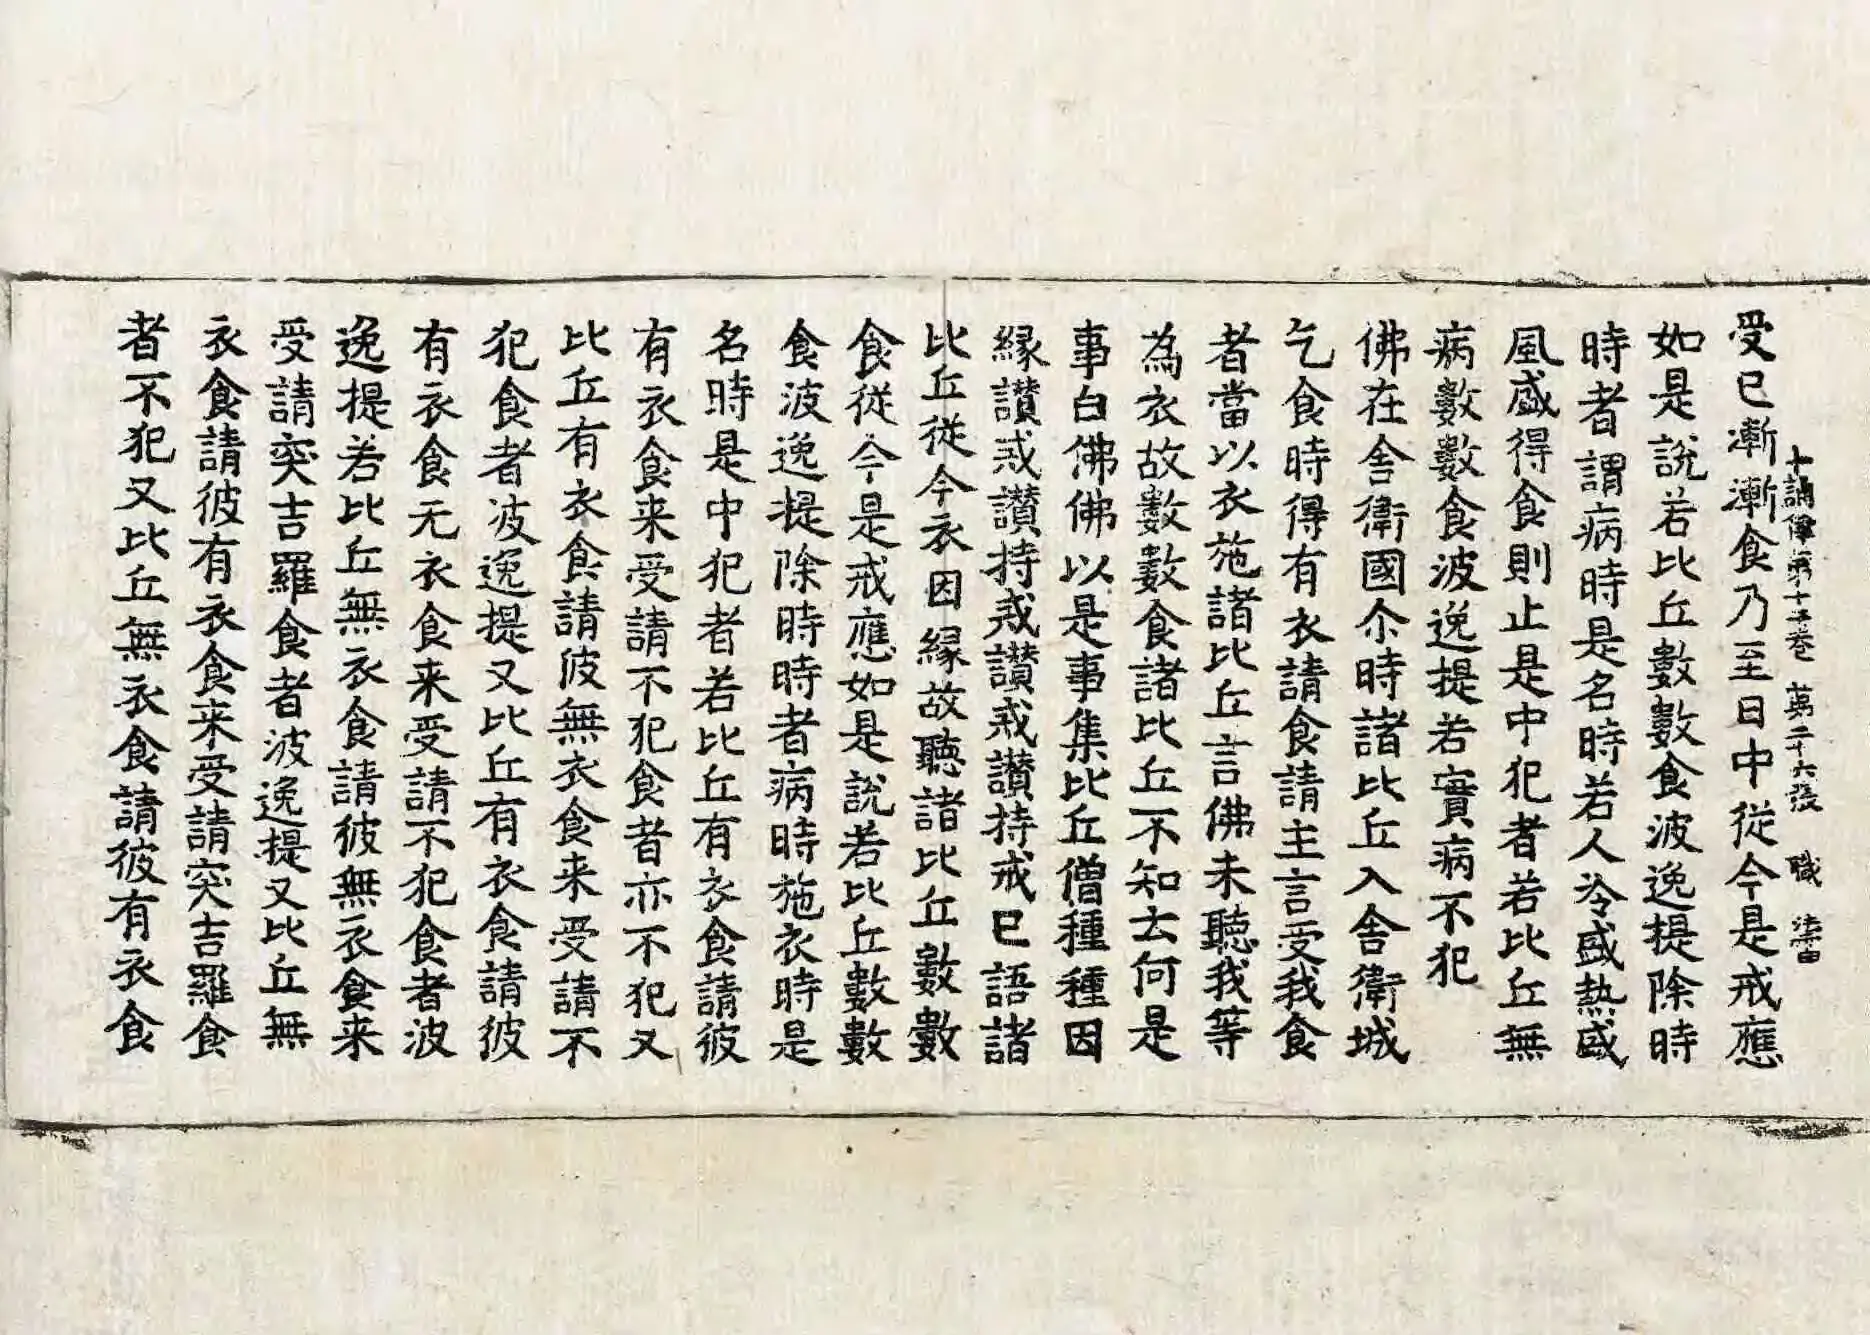 十誦律第十五卷 第二十六張 職
受已漸漸食乃至日中從今是戒應
如是說若比丘數數食波逸提除時
時者謂病時是名時若人冷盛熱盛
風盛得食則止是中犯者若比丘無
病數數食波逸提若實病不犯
佛在舍衛國尒時諸比丘入舍衛城
乞食時得有衣請食請主言受我食
者當以衣施諸比丘言佛未聽我等
為衣故數數食諸比丘不知云何是
事白佛佛以是事集比丘僧種種因
縁讃戒讃持戒讃戒讃持戒已語諸
比丘從今衣因縁故聽諸比丘數數
食從今是戒應如是說若比丘數數
食波逸提除時時者病時施衣時是
名時是中犯者若比丘有衣食請彼
有衣食来受請不犯食者亦不犯又
比丘有衣食請彼無衣食来受請不
犯食者波逸提又比丘有衣食請彼
有衣食无衣食来受請不犯食者波
逸提若比丘無衣食請彼無衣食来
受請突吉羅食者波逸提又比丘無
衣食請彼有衣食来受請突吉羅食
者不犯又比丘無衣食請彼有衣食